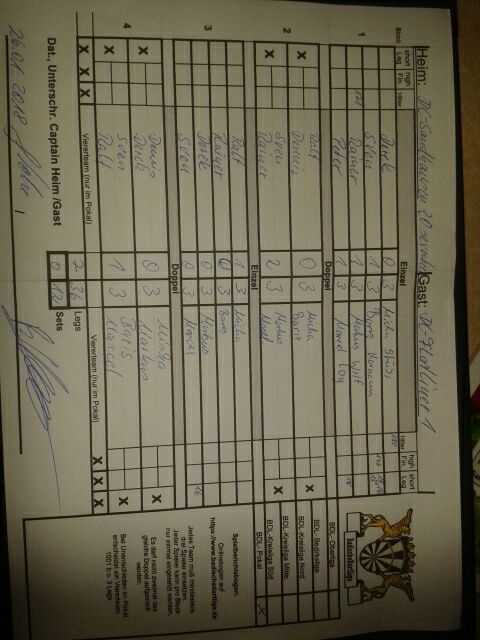 Heim: DC Sandhausen
Gast: DC Hotliner 1
Block short Leg high Fin. 180er Einzel 180er high Fin. short Leg
1 Derek 0 3 Micha
Sven 1 3 Boris
Rainer 1 3 Markus Wolf
Peter 1 3 Marcel Loy 18
Doppel
2 Ralf 0 3 Micha
X Dennis Boris X
Sven 2 3 Markus
X Rainer Marcel X
Einzel
3 Ralf 1 3 Micha
Rainer 0 3 Boris
Derek 0 3 Markus
Sven 0 3 Marcel 16
Doppel
4 Dennis 0 3 Micha
X Derek Markus X
Sven 1 3 Boris
X Ralf Marcel X
Viererteam (nur im Pokal) Viererteam (nur im Pokal)
X X X X X X
7 36 Legs
0 12 Sets
Dat., Unterschr. Captain Heim /Gast
26.01.2018
BDL- Oberliga
BDL- Bezirksliga
BDL-Kreisliga Nord
BDL- Kreisliga Mitte
BDL-Kreisliga Süd
BDL- Pokal X
Spielberichtsbogen:
Onlinebogen auf
https://www.badischedartliga.de
Jedes Team muß mindestens
drei Spieler einsetzen.
Jeder Spieler kann pro Block
nur einmal eingesetzt werden.
Es darf nicht zweimal das
gleiche Doppel aufgestellt
werden.
Bei Unentschieden im Pokal
entscheidet ein Viererteam
1001 b. o. 3 Legs